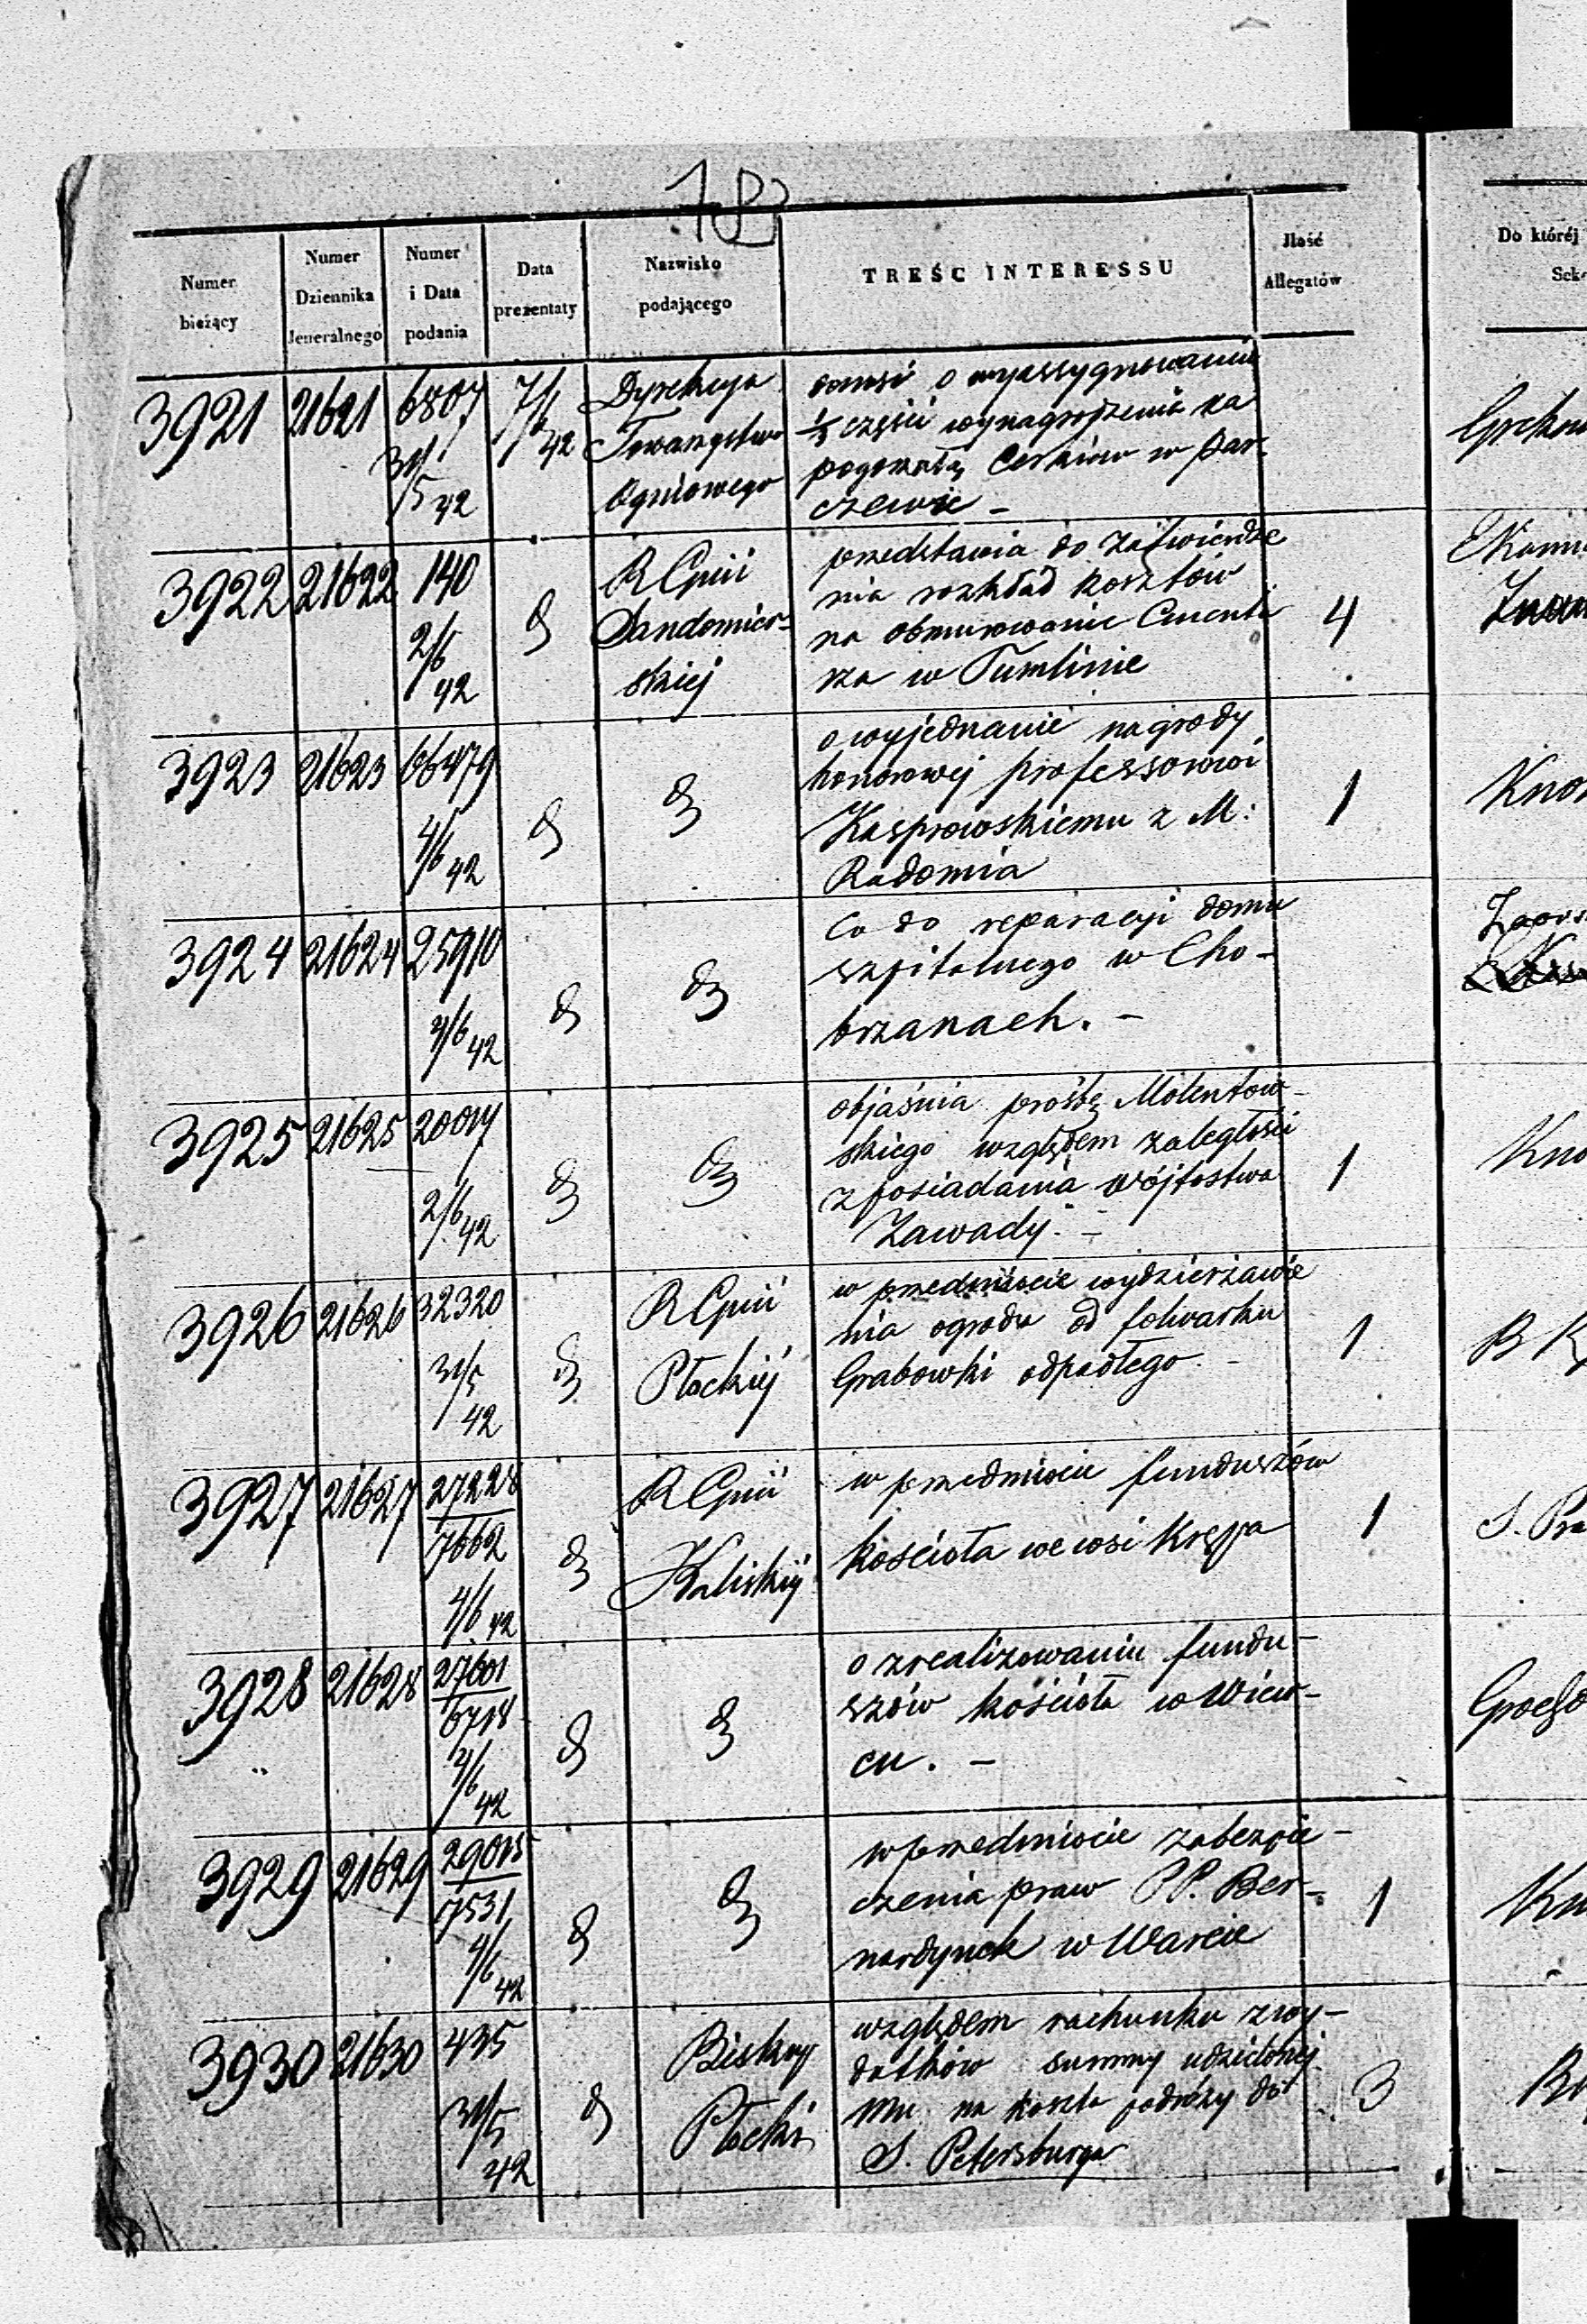 182
Numer bieżący
Numer Dziennika Jeneralnego
Numer i Data podania
Data prezentaty
Nazwisko podającego
TREŚC INTERESSU
Ilość Allegatów
Do któréj
Sek
3921 21621 6807 31/5 42 7/6 42
Dyrekcya
Towarzystwa
Ogniowego
donosi o wyassygnowaniu
1/3 części wynagrodzenia za
pogorzałą Cerkiew w Par-
czewie –
3922 21622 140 2/6 42 d
R Gnii
Sandomier-
skiej
przedstawia do zatwierdze
nia rozkład kosztów
na obmurowanie Cmenta
rza w Tumlinie
4
3923 21623 66479 4/6 42 d d
o wyjednanie nagrody
honorowej professorowi
Kasprowskiemu z M:
Radomia
1
3924 21624 25910 4/6 42 d d
Co do reparacyi domu
szpitalnego w Cho-
brzanach. –
3925 21625 20017 2/6 42 d d
objaśnia prośbę Molentow-
skiego względem zaległości
z posiadania wójtostwa
Zawady. –
1
3926 21626 32320 31/5 42 d
R Gnii
Płockiéj
w przedmiocie wydzierżawie
nia ogrodu od folwarku
Grabowki odpadłego. –
1
B
3927 21627 27228/7662 4/6 42 d
R Gnii
Kaliskiéj
w przedmiocie funduszów
kościoła we wsi Krępa
1
S. Pra
3928 21628 27601/6718 4/6 42 d d
o zrealizowaniu fundu-
szów kościoła w Wiew-
cu. –
3929 21629 29015/7531 4/6 42 d d
w przedmiocie zabezpie-
czenia praw PP. Ber-
nardynek w Warcie
1
3930 21630 435 31/5 42 d
Biskup
Płocki
względem rachunku z wy-
datków summy udzielonej
mu na koszta podróży do
S. Petersburga
3